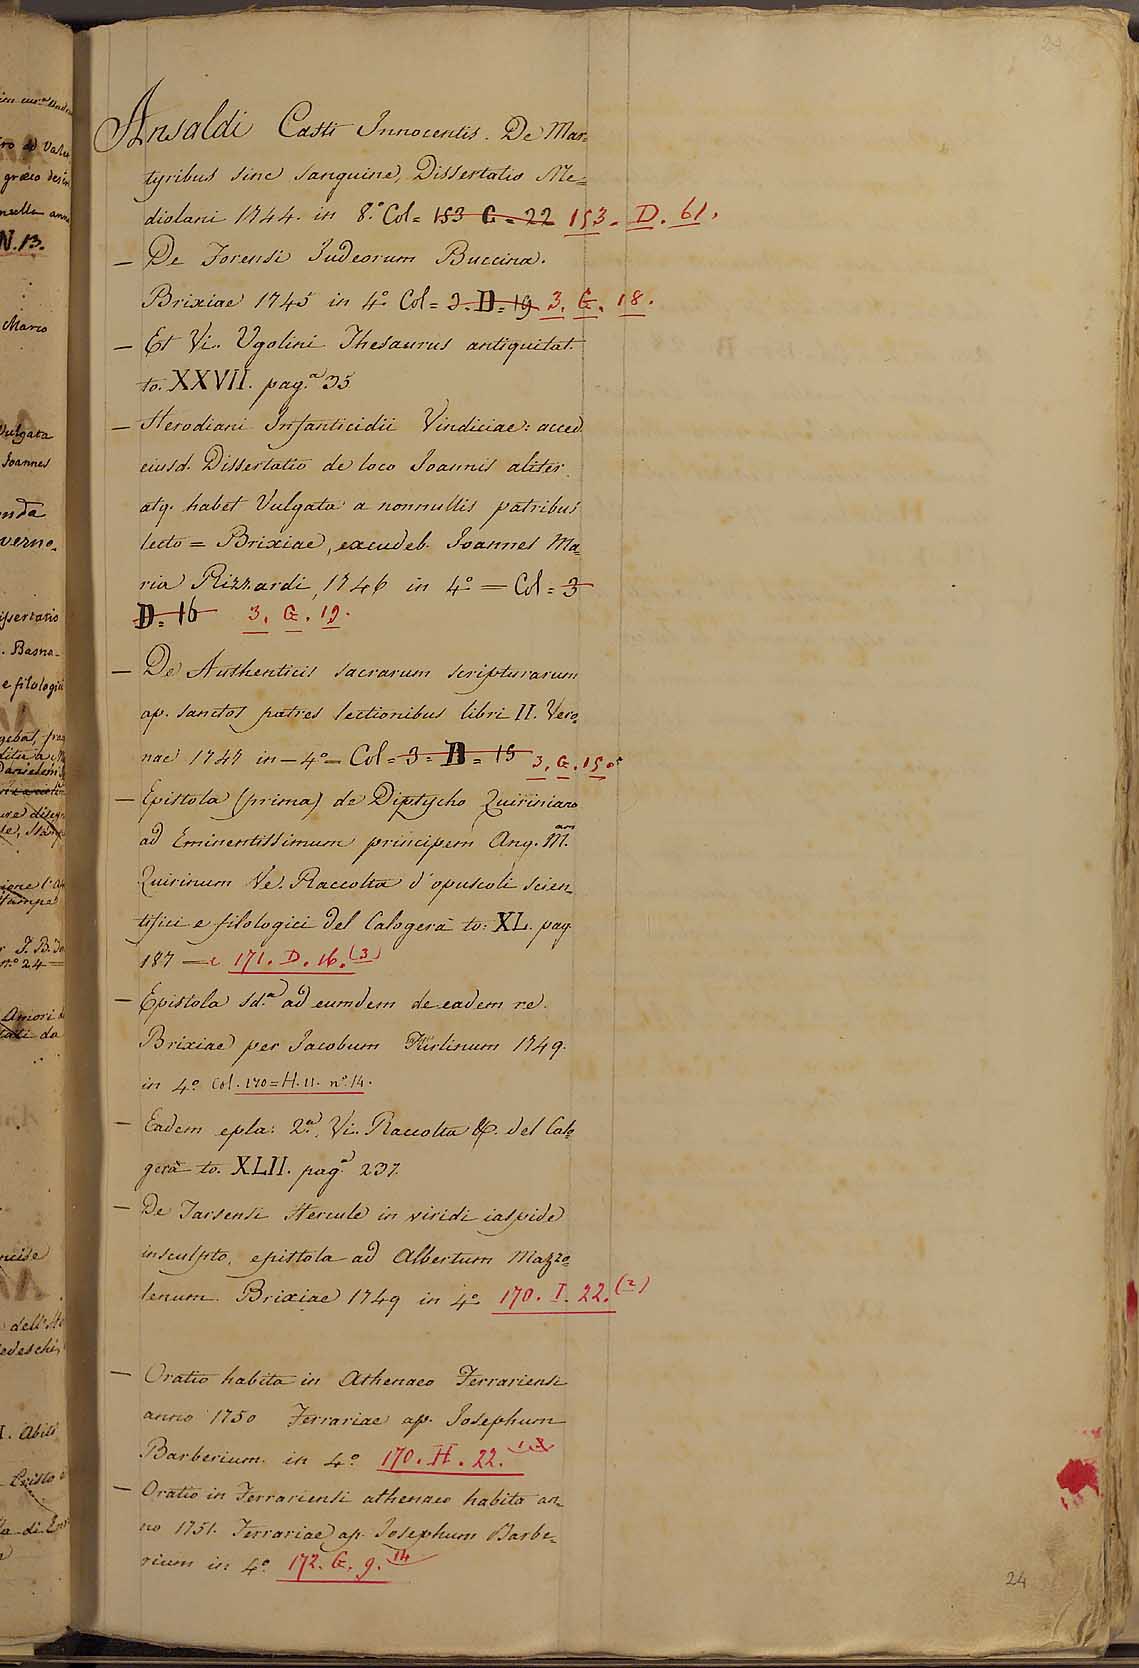 24
Ansaldi Casti Innocentis. De Mar=
tyribus sine sanguine, Dissertatio Me=
diolani 1744. in 8.º Col= 153 G = 22 153. D. 61.
— De Forensi Judeorum Buccina.
Brixiae 1745 in 4º Col= 3. D= 19 3. G. 18.
— Et Vi. Ugolini Thesaurus antiquitat.
to. XXVII. pag.ª 35
— Herodiani Infanticidii Vindiciae: acced.
eiusd. Dissertatio de loco Joannis aliter
atq. habet Vulgata a nonnullis patribus
lecto = Brixiae, excudeb. Joannes Ma=
ria Rizzardi, 1746 in 4º = Col= 3
D= 16 3. G. 19.
— De Authenticis sacrarum scripturarum
ap. sanctos patres lectionibus libri II. Vero=
nae 1747 in — 4º — Col= 3= D= 15 3. G. 15.
— Epistola (prima) de Diptycho Quiriniano
ad Eminentissimum principem Ang. M.am
Quirinum Ve. Raccolta d'opuscoli scien=
tifici e filologici del Calogerà to: XL. pag.
187 — c 171. D. 16. (3)
— Epistola sd.ª ad eumdem de eadem re.
Brixiae per Jacobum Turlinum 1749.
in 4º Col. 170=H. 11. nº. 14.
— Eadem epla: 2.ª, Vi. Raccolta &. del Calo=
gerà to. XLII. pag.ª 237.
— De Tarsensi Hercule in viridi iaspide
insculpto, epistola ad Albertum Mazzo=
lenum. Brixiae 1749 in 4º 170. I. 22. (2)
— Oratio habita in Athenaeo Ferrariensi
anno 1750 Ferrariae ap. Josephum
Barberium. in 4º 170. H. 22.
— Oratio in Ferrariensi athenaeo habita an=
no 1751. Ferrariae ap. Josephum Barbe=
rium in 4º 172. G. 9. 14
24
N. 13.
Marco
Vulgata
Joannes
verno.
. Basna-
e filologici